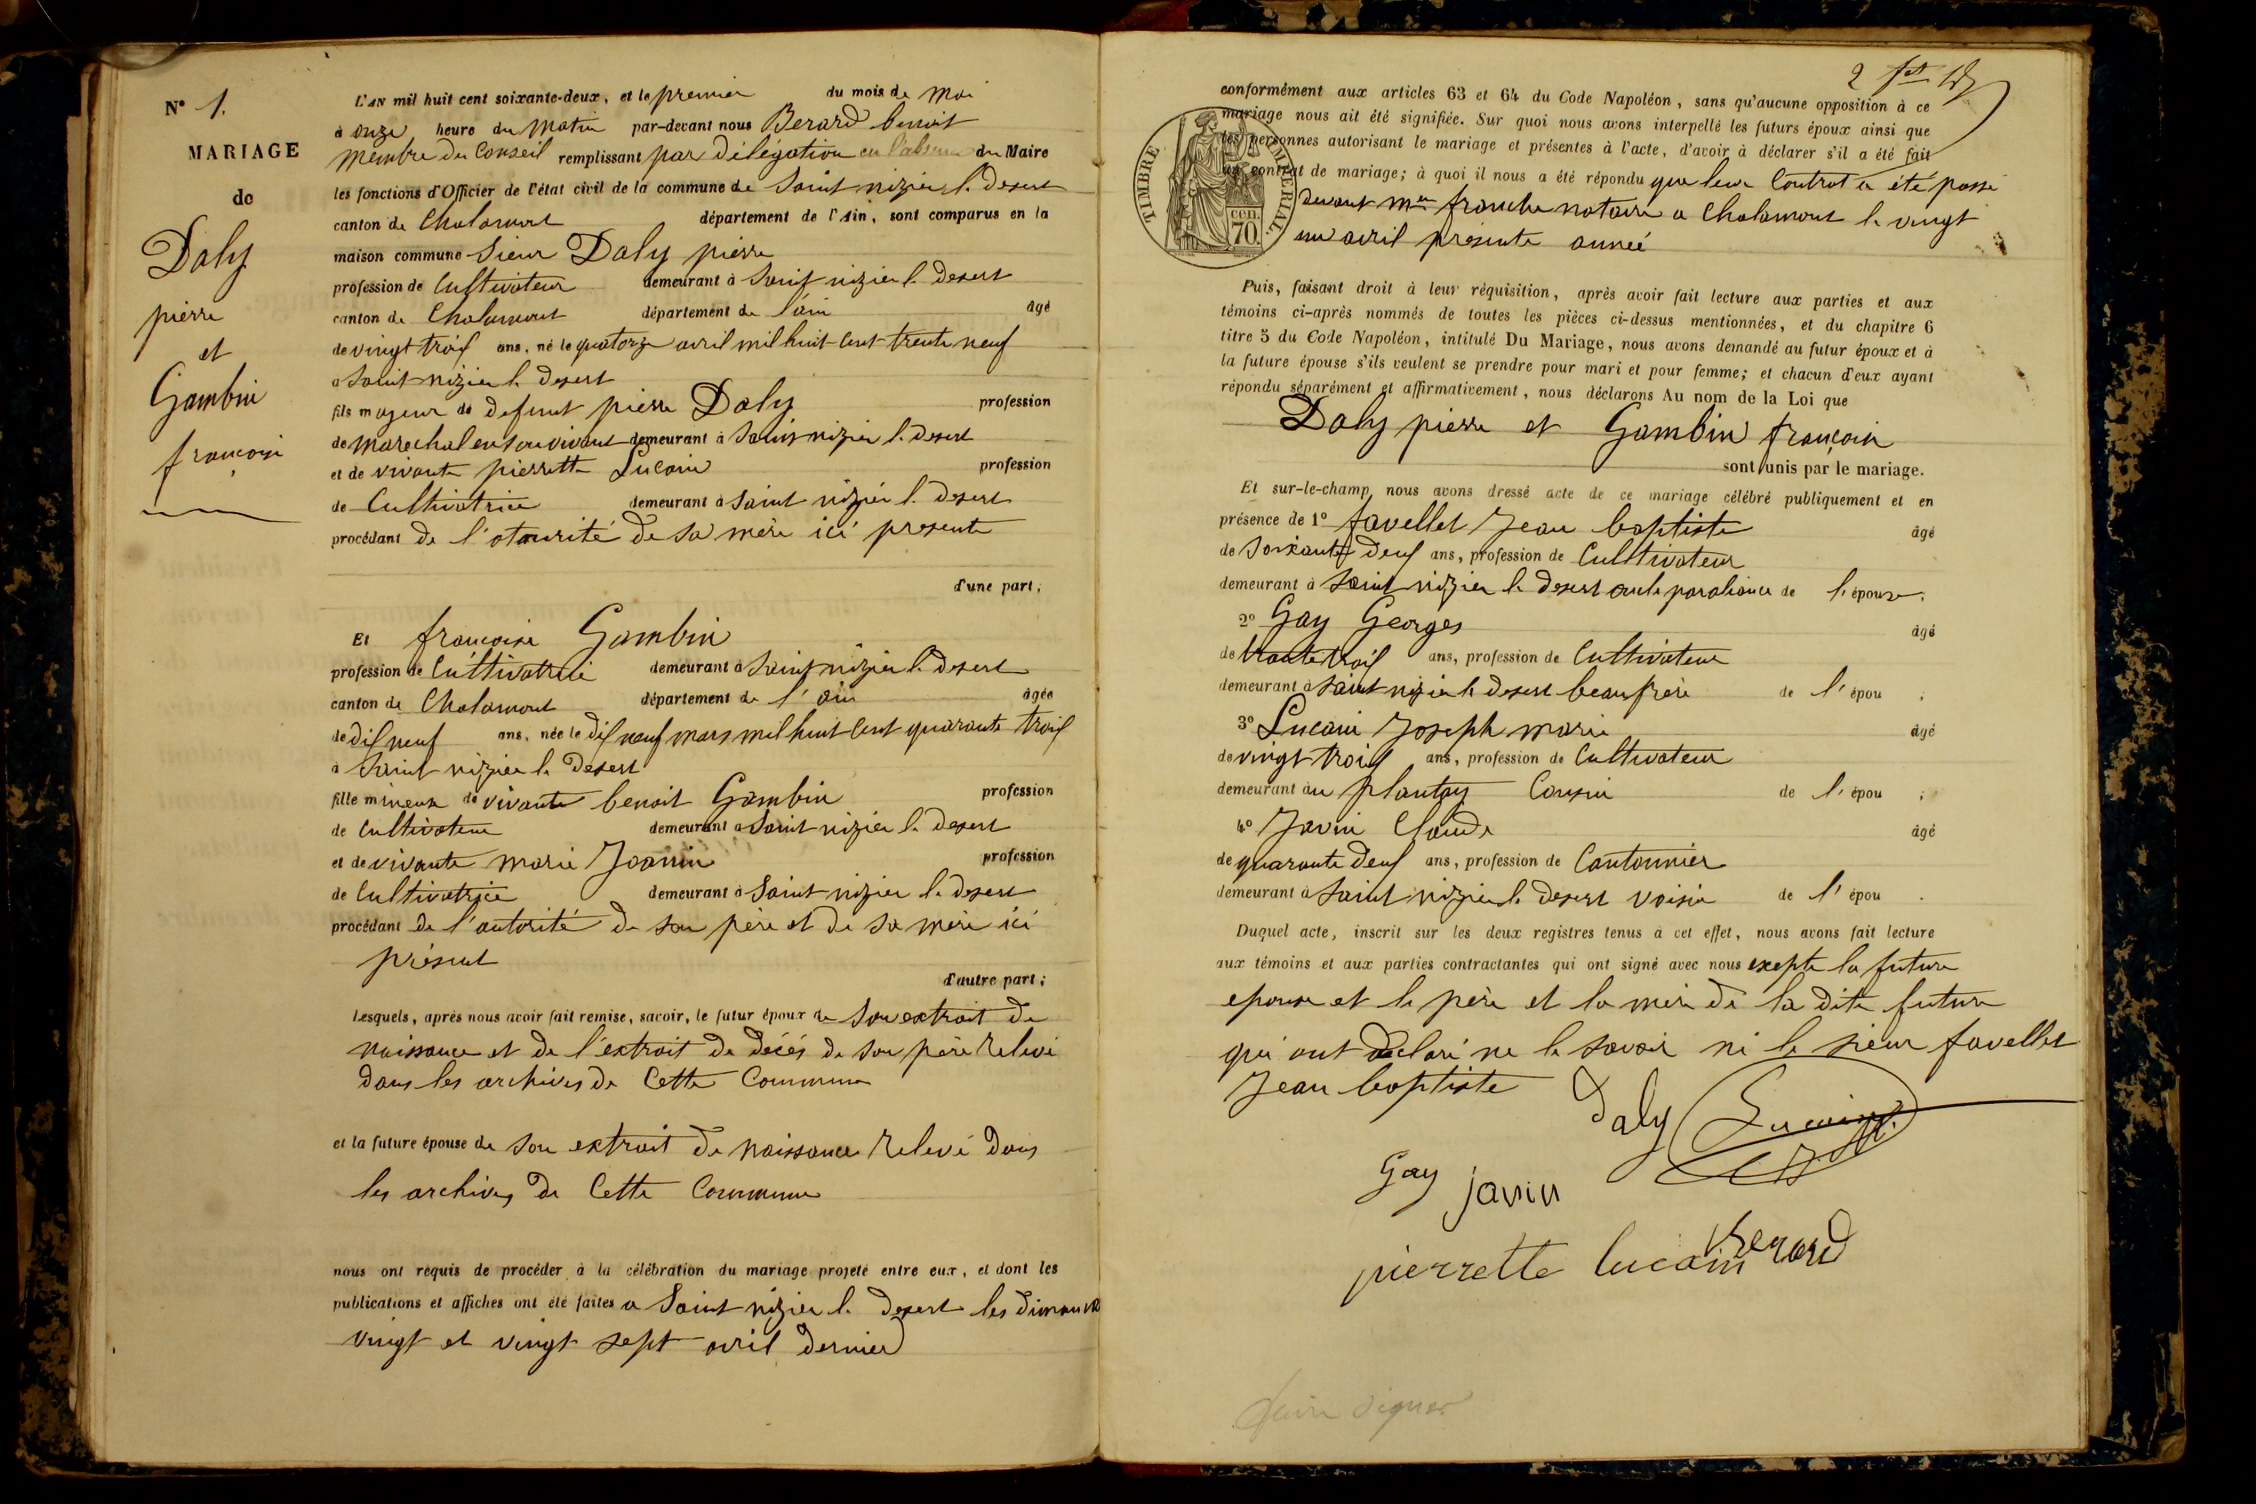 N° 1.
MARIAGE
de
Daly
pierre
et
Gambin
françoise
L'AN mil huit cent soixante-deux, et le premier du mois de Mai
à onze heure du Matin par-devant nous Berard benoit
Membre du Conseil remplissant par délégation en l'absence du Maire
les fonctions d'Officier de l'état civil de la commune de Saint nizier le Desert
canton de Chalamont département de l'Ain, sont comparus en la
maison commune Sieur Daly pierre
profession de Cultivateur demeurant à Saint nizier le Desert
canton de Chalamont département de l'ain âgé
de vingt trois ans, né le quatorze avril mil huit cent trente neuf
à Saint nizier le Desert
fils majeur de defunt pierre Daly profession
de marechal en son vivant demeurant à Saint nizier le desert
et de vivante pierrette Lucain profession
de Cultivatrice demeurant à Saint nizier le desert
procédant de l'otourité de sa mère ici presente
d'une part;
Et françoise Gambin
profession de Cultivatrice demeurant à Saint nizier le desert
canton de Chalamont département de l'ain âgée
de dix neuf ans, née le dix neuf mars mil huit cent quarante trois
à Saint nizier le Desert
fille mineure de vivante benoit Gambin profession
de Cultivateur demeurant à Saint nizier le desert
et de vivante marie Joanin profession
de Cultivatrice demeurant à Saint nizier le desert
procédant de l'autorité de son père et de sa mère ici
présent
d'autre part;
Lesquels, après nous avoir fait remise, savoir, le futur époux de Son extrait de
naissance et de l'extrait de décés de son père Relevé
dans les archives de Cette Commune
et la future épouse de son extrait de naissance Relevé dans
les archives de Cette Commune
nous ont requis de procéder à la célébration du mariage projeté entre eux, et dont les
publications et affiches ont été faites a Saint nizier le desert les dimanche
vingt et vingt sept avril dernier
2
conformément aux articles 63 et 64 du Code Napoléon, sans qu'aucune opposition à ce
mariage nous ait été signifiée. Sur quoi nous avons interpellé les futurs époux ainsi que
les personnes autorisant le mariage et présentes à l'acte, d'avoir à déclarer s'il a été fait
un contrat de mariage; à quoi il nous a été répondu que leur Contrat a été passé
devant mtre franche notaire a Chalamont le vingt
un avril présente année
TIMBRE IMPERIAL.
cen.
70.
Puis, faisant droit à leur réquisition, après avoir fait lecture aux parties et aux
témoins ci-après nommés de toutes les pièces ci-dessus mentionnées, et du chapitre 6
titre 5 du Code Napoléon, intitulé Du Mariage, nous avons demandé au futur époux et à
la future épouse s'ils veulent se prendre pour mari et pour femme; et chacun d'eux ayant
répondu séparément et affirmativement, nous déclarons Au nom de la Loi que
Daly pierre et Gambin françoise
sont unis par le mariage.
Et sur-le-champ nous avons dressé acte de ce mariage célébré publiquement et en
présence de 1° favellet Jean baptiste âgé
de Soixante deux ans, profession de Cultivateur
demeurant à Saint nizier le desert oncle par aliance de l'épouse;
2° Gay Georges âgé
de trente trois ans, profession de Cultivateur
demeurant à Saint nizier le desert beaufrère de l'épou ;
3° Lucain Joseph marie âgé
de vingt trois ans, profession de Cultivateur
demeurant au plantay Cousin de l'épou ;
4° Javin Claude âgé
de quarante deux ans, profession de Cantonnier
demeurant à Saint nizier le desert voisin de l'épou .
Duquel acte, inscrit sur les deux registres tenus à cet effet, nous avons fait lecture
aux témoins et aux parties contractantes qui ont signé avec nous excepte la future
epouse et le père et la mère de la dite future
qui ont déclaré ne le savoir ni le sieur favellet
Jean baptiste
Daly Lucain
Gay Javin
pierrette lucain Berard